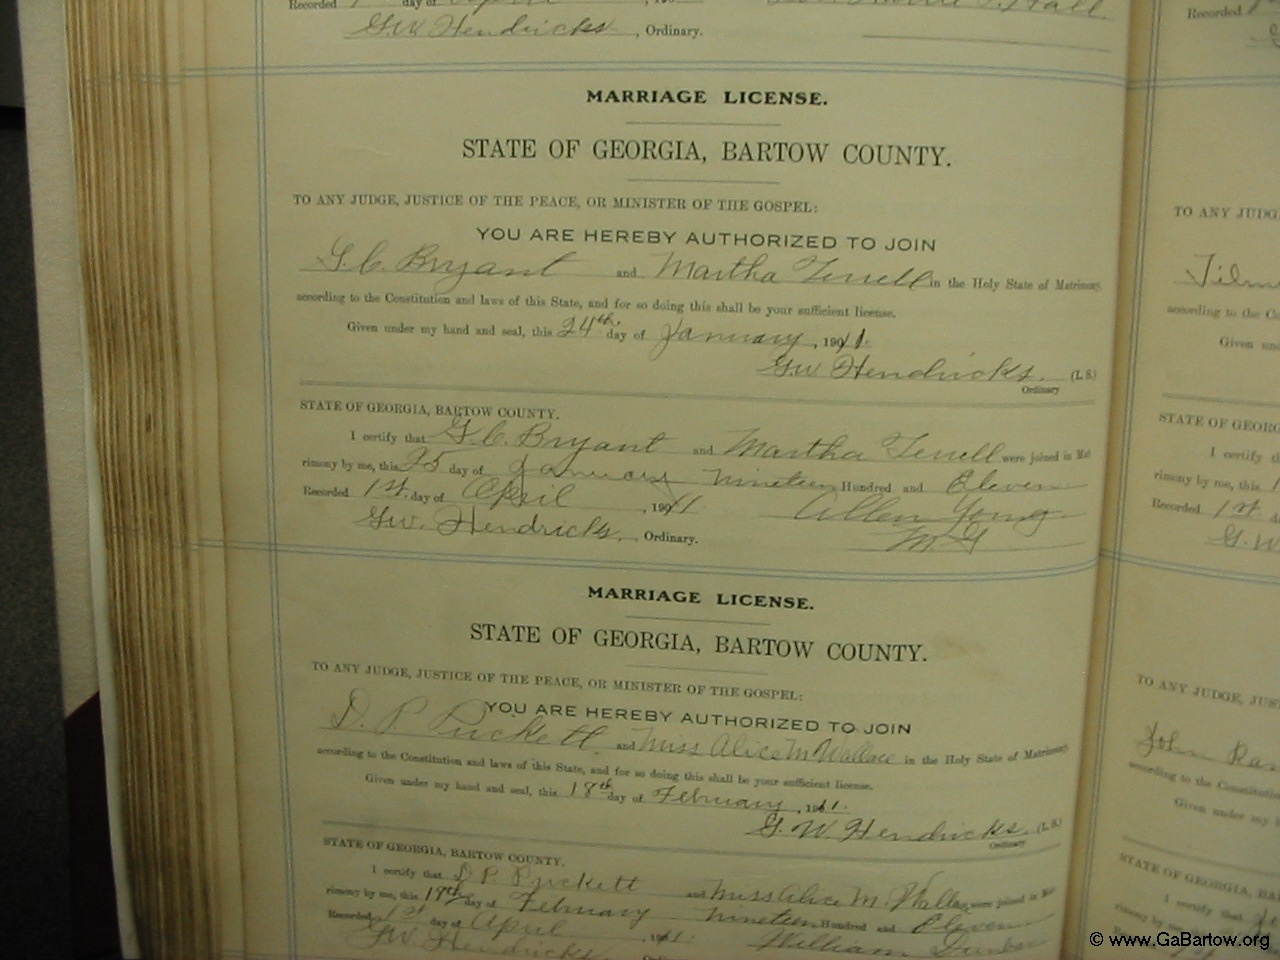 Recorded day of April, 190
G.W. Hendricks, Ordinary. Hall
MARRIAGE LICENSE.
STATE OF GEORGIA, BARTOW COUNTY.
TO ANY JUDGE, JUSTICE OF THE PEACE, OR MINISTER OF THE GOSPEL:
YOU ARE HEREBY AUTHORIZED TO JOIN
G. C. Bryant and Martha Terrell in the Holy State of Matrimony,
according to the Constitution and laws of this State, and for so doing this shall be your sufficient license.
Given under my hand and seal, this 24th day of January, 1911.
G.W. Hendricks. (L. S.)
Ordinary
STATE OF GEORGIA, BARTOW COUNTY.
I certify that G. C. Bryant and Martha Terrell were joined in Mat
rimony by me, this 25 day of January nineteen Hundred and Eleven
Recorded 1st. day of April, 1911. Allen Young
G.W. Hendricks., Ordinary. M G
MARRIAGE LICENSE.
STATE OF GEORGIA, BARTOW COUNTY.
TO ANY JUDGE, JUSTICE OF THE PEACE, OR MINISTER OF THE GOSPEL:
YOU ARE HEREBY AUTHORIZED TO JOIN
D. P. Puckett and Miss Alice M Wallace in the Holy State of Matrimony,
according to the Constitution and laws of this State, and for so doing this shall be your sufficient license.
Given under my hand and seal, this 18th day of February, 1911.
G. W. Hendricks. (L. S.)
Ordinary
STATE OF GEORGIA, BARTOW COUNTY.
I certify that D P. Puckett and Miss Alice M. Wallace were joined in Mat
rimony by me, this 19th day of February nineteen Hundred and Eleven
Recorded 1st day of April, 1911. William Dunbar
G.W. Hendricks
Recorded
TO ANY JUDG
according to the Co
Given und
STATE OF GEORG
I certify th
rimony by me, this
Recorded 1st d
G. W
TO ANY JUDGE, JUS
John
according to the Constitution
Given under my h
STATE OF GEORGIA, BA
I certify that
rimony by me, this
Recorded
© www.GaBartow.org